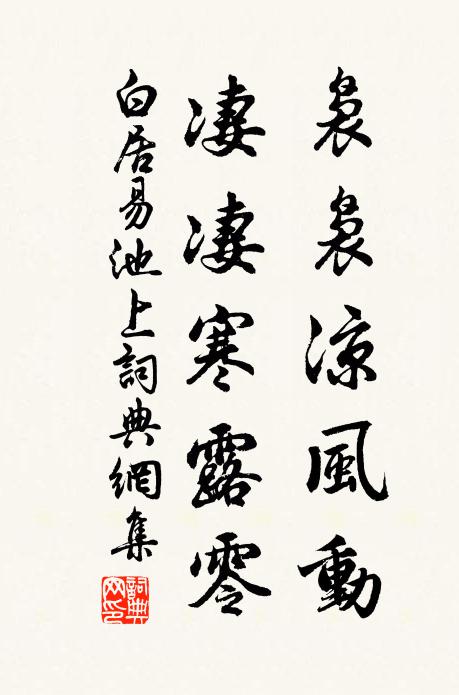 裊裊涼風動
淒淒寒露零
白居易池上詞典網集
詞典網印